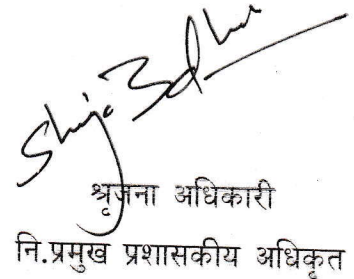 श्रृजना अधिकारी
नि.प्रमुख प्रशासकीय अधिकृत